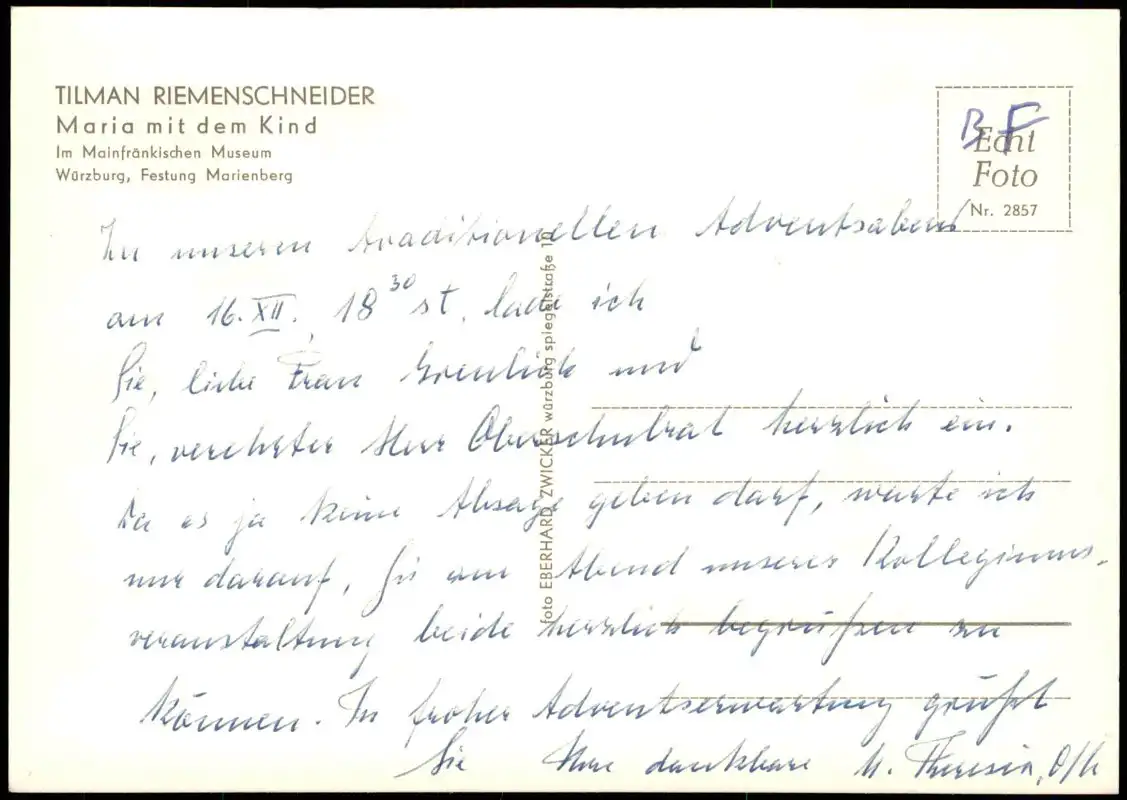 TILMAN RIEMENSCHNEIDER
Maria mit dem Kind
Im Mainfränkischen Museum
Würzburg, Festung Marienberg
BF
Echt
Foto
Nr. 2857
foto EBERHARD ZWICKER würzburg spiegelstraße 10
Zu unserem traditionellen Adventsabend
am 16. XII. 18 30 st. lade ich
Sie, liebe Frau und
Sie, verehrter Herr Oberschulrat herzlich ein.
Da es ja keine Absage geben darf, warte ich
nur darauf, Sie am Abend unserer Kollegiums-
veranstaltung beide herzlich begrüßen zu
können. In froher Adventserwartung grüßt
Sie Ihre dankbare M. Theresia,